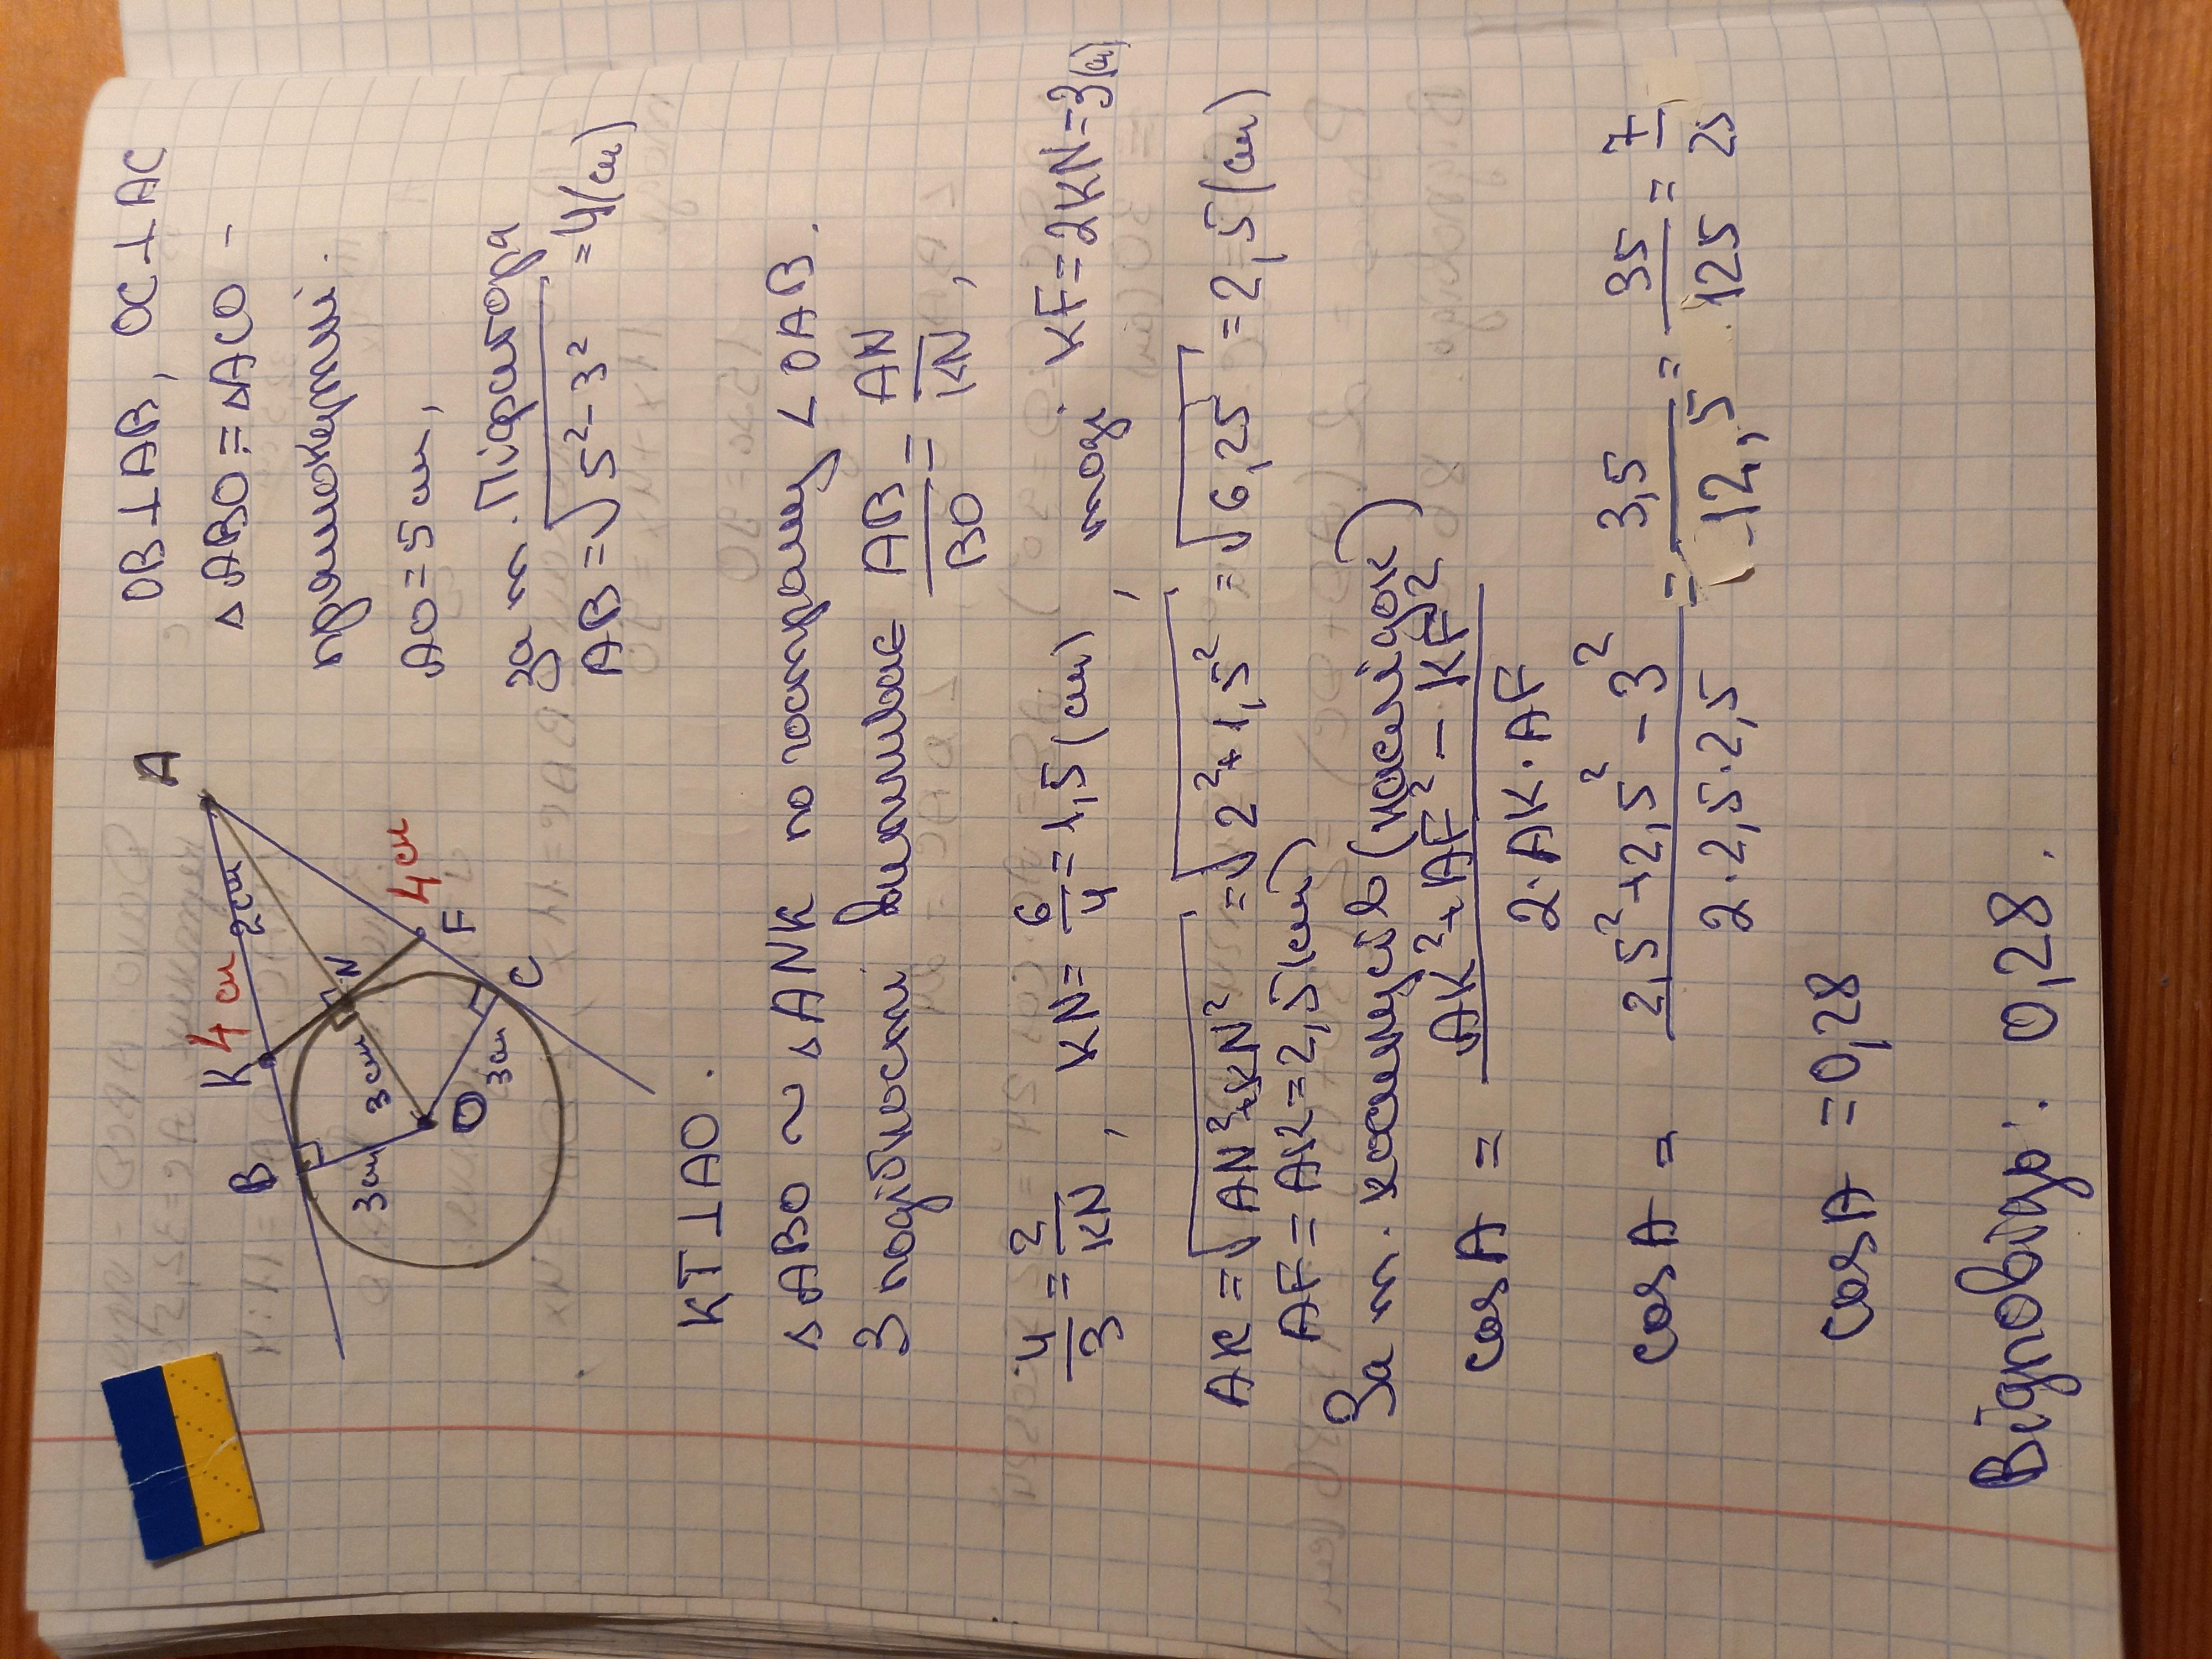 A
OB ⊥ AB, OC ⊥ AC
K 4 см 2 см
B
N
4 см
3 см 3 см
F
O
3 см
C
△ABO = △ACO -
прямокутні.
AO = 5 см,
За т. Піфагора
AB = √5² - 3² = 4 (см)
KF ⊥ AO.
△ABO ~ △ANK по гострому ∠OAB.
З подібності випливає AB/BO = AN/KN,
4/3 = 2/KN, KN = 6/4 = 1,5 (см), тоді KF = 2KN = 3 (см)
AK = √AN² + KN² = √2² + 1,5² = √6,25 = 2,5 (см)
AF = AK = 2,5 (см)
За т. косинусів (наслідок)
cos A = AK² + AF² - KF² / 2·AK·AF
cos A = 2,5² + 2,5² - 3² / 2·2,5·2,5 = 3,5/12,5 = 35/125 = 7/25
cos A = 0,28
Відповідь: 0,28.